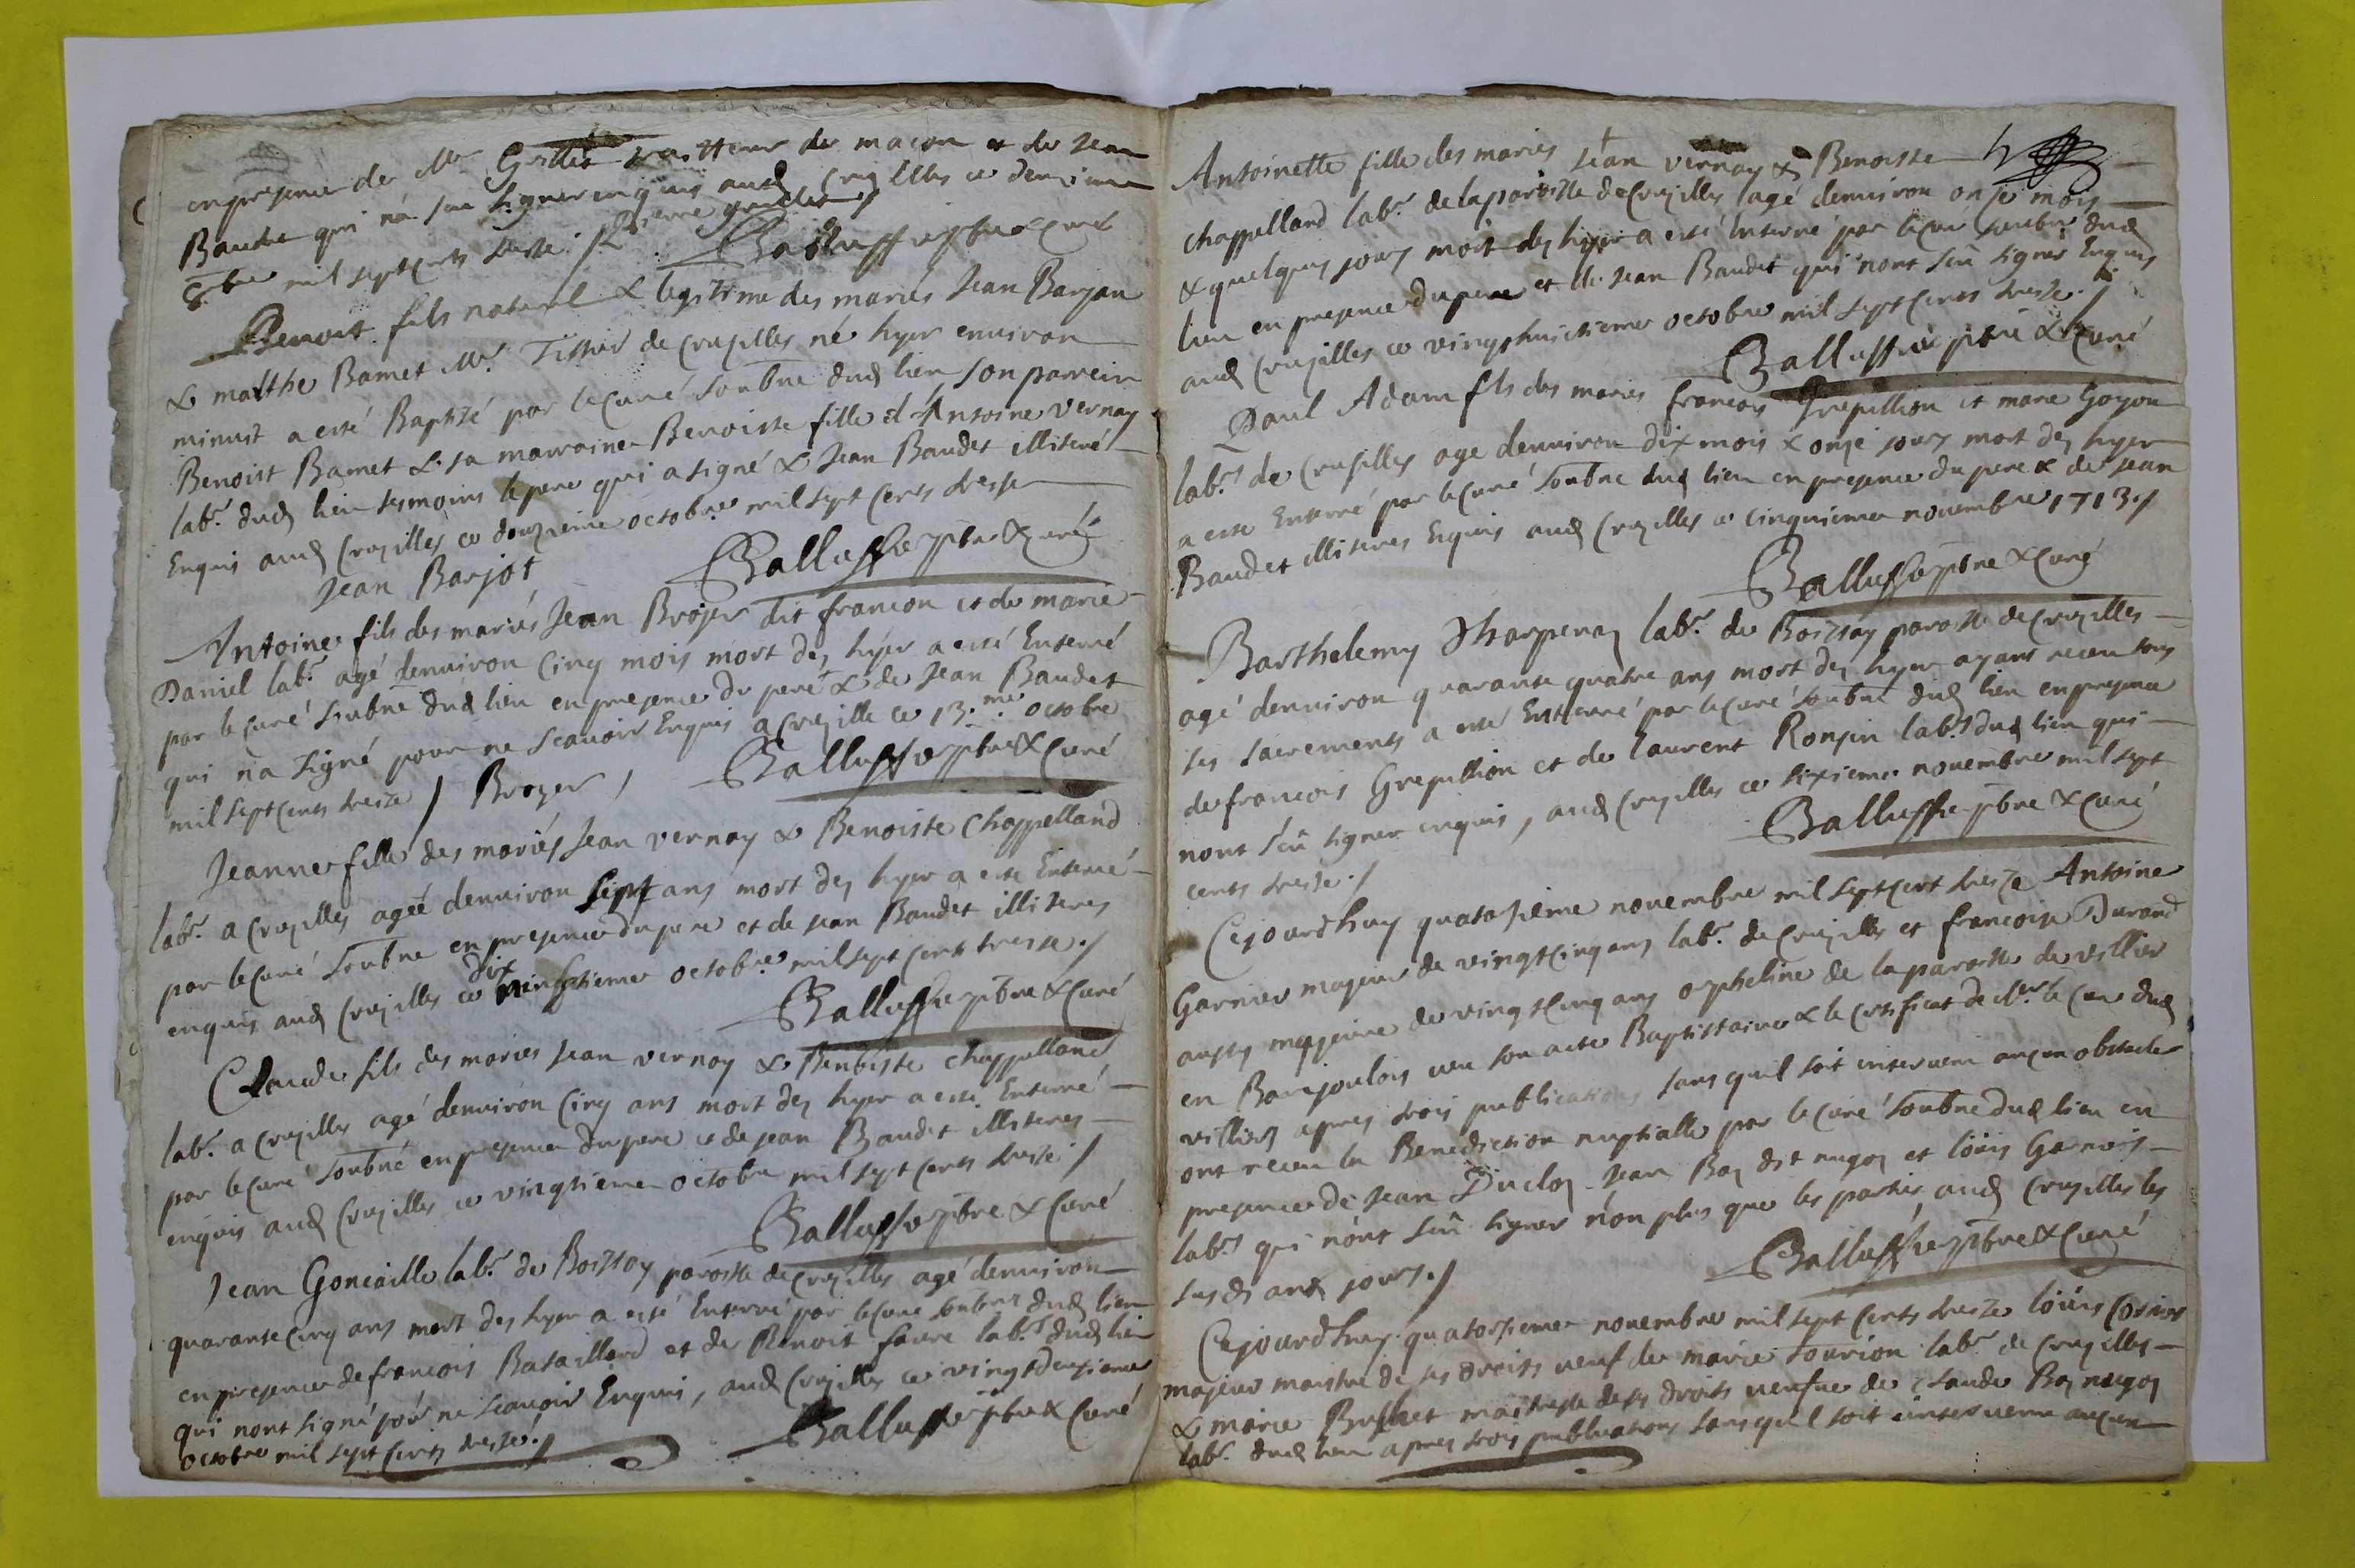 en presence de Mr Grillet traitteur de macon et de Jean
Baudet qui n'a sceu signer enquis aud Cruzilles ce deuxieme
8bre mil sept cents treise./ Pierre grillet /
Balluffie ptre & curé
Benoit fils naturel & legitime des mariés Jean Barjau
& marthe Bamet Mr Tissier de Cruzilles né hyer environ
minuit a esté Baptisé par le Curé soubne dud lieu, son parrein
Benoist Bamet & sa marraine Benoiste fille d'Antoine vernay
labr dud lieu tesmoins le pere qui a signé & Jean Baudet illiteré
Enquis aud Cruzilles ce douzieme octobre mil sept cents treise
Jean Barjot
Balluffie ptre & curé
Antoine fils des mariés Jean Brojer dit francon et de marie
Daniel labr agé denuiron cinq mois mort dez hyer a esté Enterré
par le curé soubne dud lieu en presence du pere & de Jean Baudet
qui na signé pour ne scauoir Enquis a Cruzille ce 13.me octobre
mil sept cents treize / Brozer /
Balluffie ptre & Curé
Jeanne fille des mariés Jean vernay & Benoiste Chappelland
labr a Cruzilles agée denuiron sept ans mort dez hyer a esté Enterré
par le curé soubne en presence du pere et de Jean Baudet illiteres
dix
enquis aud Cruzilles ce neuftieme octobre mil sept cents treise./
Balluffie ptre & Curé
Claude fils des maries Jean vernay & Benoiste chappelland
labr a Cruzilles agé denuiron Cinq ans mort dez hyer a esté Enterré
par le curé soubne en presence du pere et de Jean Baudet illiteres
enquis aud Cruzilles ce vingtieme octobre mil sept cents treise /
Balluffie ptre & Curé
Jean Goncaille labr de Boissay paroisse de Cruzilles agé denuiron
quarante cinq ans mort dez hyer a esté Enterré par le curé soubne dud lieu
en presence de francois Bataillard et de Benoit faure labrs dud lieu
qui nont signé pour ne scauoir Enquis, aud Cruzilles ce vingt deuxieme
octobre mil sept cents treize./
Balluffie ptre & Curé
Antoinette fille des mariés Jean vernay & Benoiste
chappelland labr de la paroisse de Cruzilles agé denuiron onze mois
& quelques jours mort dez hyer a esté Enterré par le curé soubne dud
lieu en presence du pere et de Jean Baudet qui nont sceû signer Enquis
aud Cruzilles ce vingt huictieme octobre mil sept cents treize./
Balluffie ptre & Curé
Paul Adam fils des maries francois Grepillion et marie Goyon
labr de Cruzilles age denuiron dix mois & onze jours mort dez hyer
a esté Enterré par le curé soubne dud lieu en presence du pere & de Jean
Baudet illiteres Enquis aud Cruzilles ce cinquieme nouembre 1713./
Balluffie ptre & Curé
Barthelemy labr de Boissay paroisse de Cruzilles
agé denuiron quarante quatre ans mort dez hyer ayant receu tous
ses sacrements a esté Enterré par le curé soubne dud lieu en presence
de francois Grepillion et de laurent Ronjin labrs dud lieu qui
nont sceû signer enquis, aud Cruzilles ce sixieme nouembre mil sept
cents treize./
Balluffie ptre & Curé
Cejourdhuy quatorzieme nouembre mil sept cent treize Antoine
Garnier majeur de vingt cinq ans labr de Cruzilles et francoise Durand
aussy majeure de vingt cinq ans orpheline de la paroisse de villier
en Baujoulois veu son acte Baptistaire & le certificat de Mr le Curé dud
villier apres trois publications sans quil soit interuenu aucun obstacle
ont receu la Benediction nuptialle par le curé soubne dud lieu en
presence de Jean Ducloz Jean Boz dit nugoz et loüis Garnier
labrs qui n'ont sceû signer n'on plus que les parties, aud Cruzilles les
susd an & jours./
Balluffie ptre & Curé
Cejourdhuy quatorzieme nouembre mil sept cents treize loüis Cosnier
majeur maistre de ses droits veuf de marie Tourion labr de Cruzilles
& marie Buchet maistresse de ses droits veufue de Claude Boz nugoz
labr dud lieu apres trois publications sans quil soit interuenu aucun